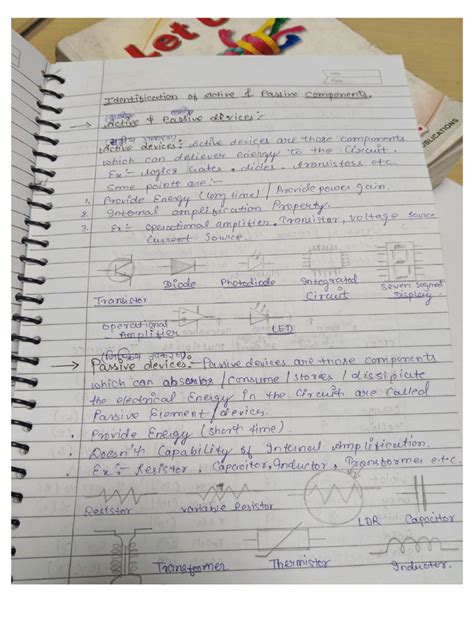 Let Us
BLICATIONS
Identification of active & Passive Components.
(सक्रिय
→ Active & Passive devices:-
Active devices:- Active devices are those components
which can deliever energy to the Circuit.
Ex:- logics Gates, diodes, transistors etc.
Some points are:-
1. Provide Energy (long time) / Provide power gain.
2. Internal amplification Property.
3. Ex:- operational amplifier, Transistor, voltage source
Current Source.
Diode Photodiode Integrated Circuit Seven Segment Display
Transistor
Operational Amplifier LED
→ Passive devices:- Passive devices are those components
which can absorbs / consume / stores / dissipiate
the electrical Energy in the Circuit are Called
Passive Element / devices.
• Provide Energy (short time).
• Doesn't Capability of Internal Amplification.
• Ex:- Resistor, Capacitor, Inductor, Transformer e.t.c.
Resistor Variable Resistor LDR Capacitor
Transformer Thermistor Inductor